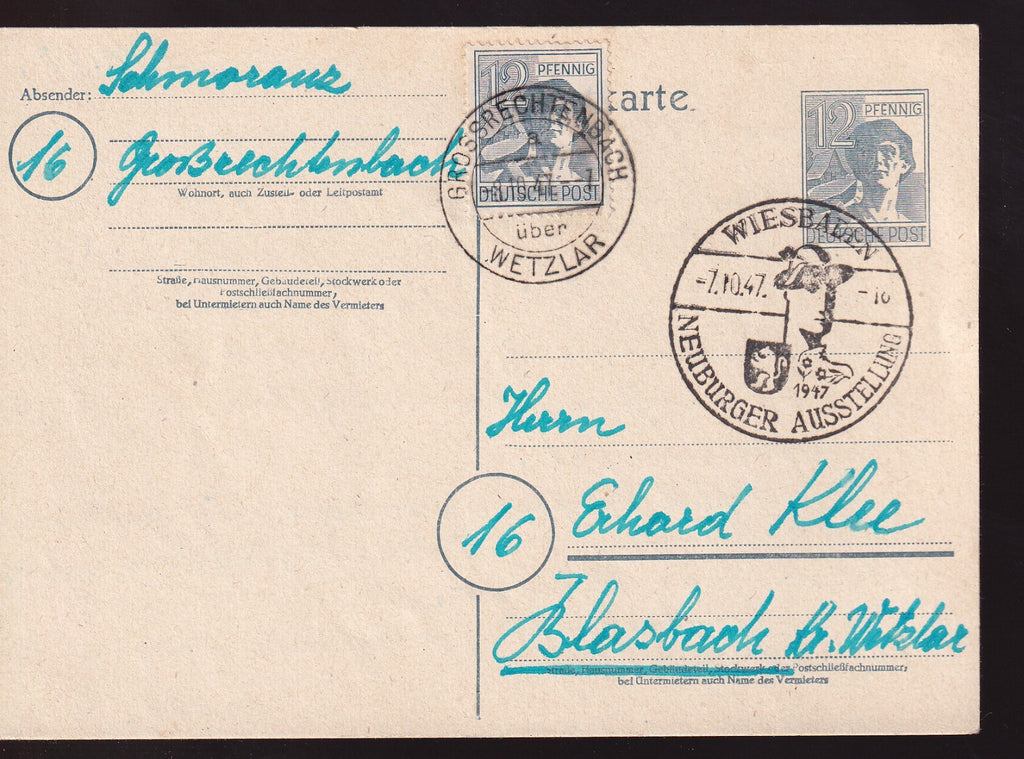 Absender: Schmoranz
16
Großrechtenbach
Wohnort, auch Zustell- oder Leitpostamt
Straße, Hausnummer, Gebäudeteil, Stockwerk oder
Postschließfachnummer;
bei Untermietern auch Name des Vermieters
12 PFENNIG
DEUTSCHE POST
karte
GROSSRECHTENBACH
a
10.47
über
WETZLAR
12 PFENNIG
DEUTSCHE POST
WIESBADEN
-7.10.47.
NEUBURGER AUSSTELLUNG
1947
Herrn
16
Erhard Klee
Blasbach Kr. Wetzlar
Straße, Hausnummer, Gebäudeteil, Stockwerk oder Postschließfachnummer;
bei Untermietern auch Name des Vermieters